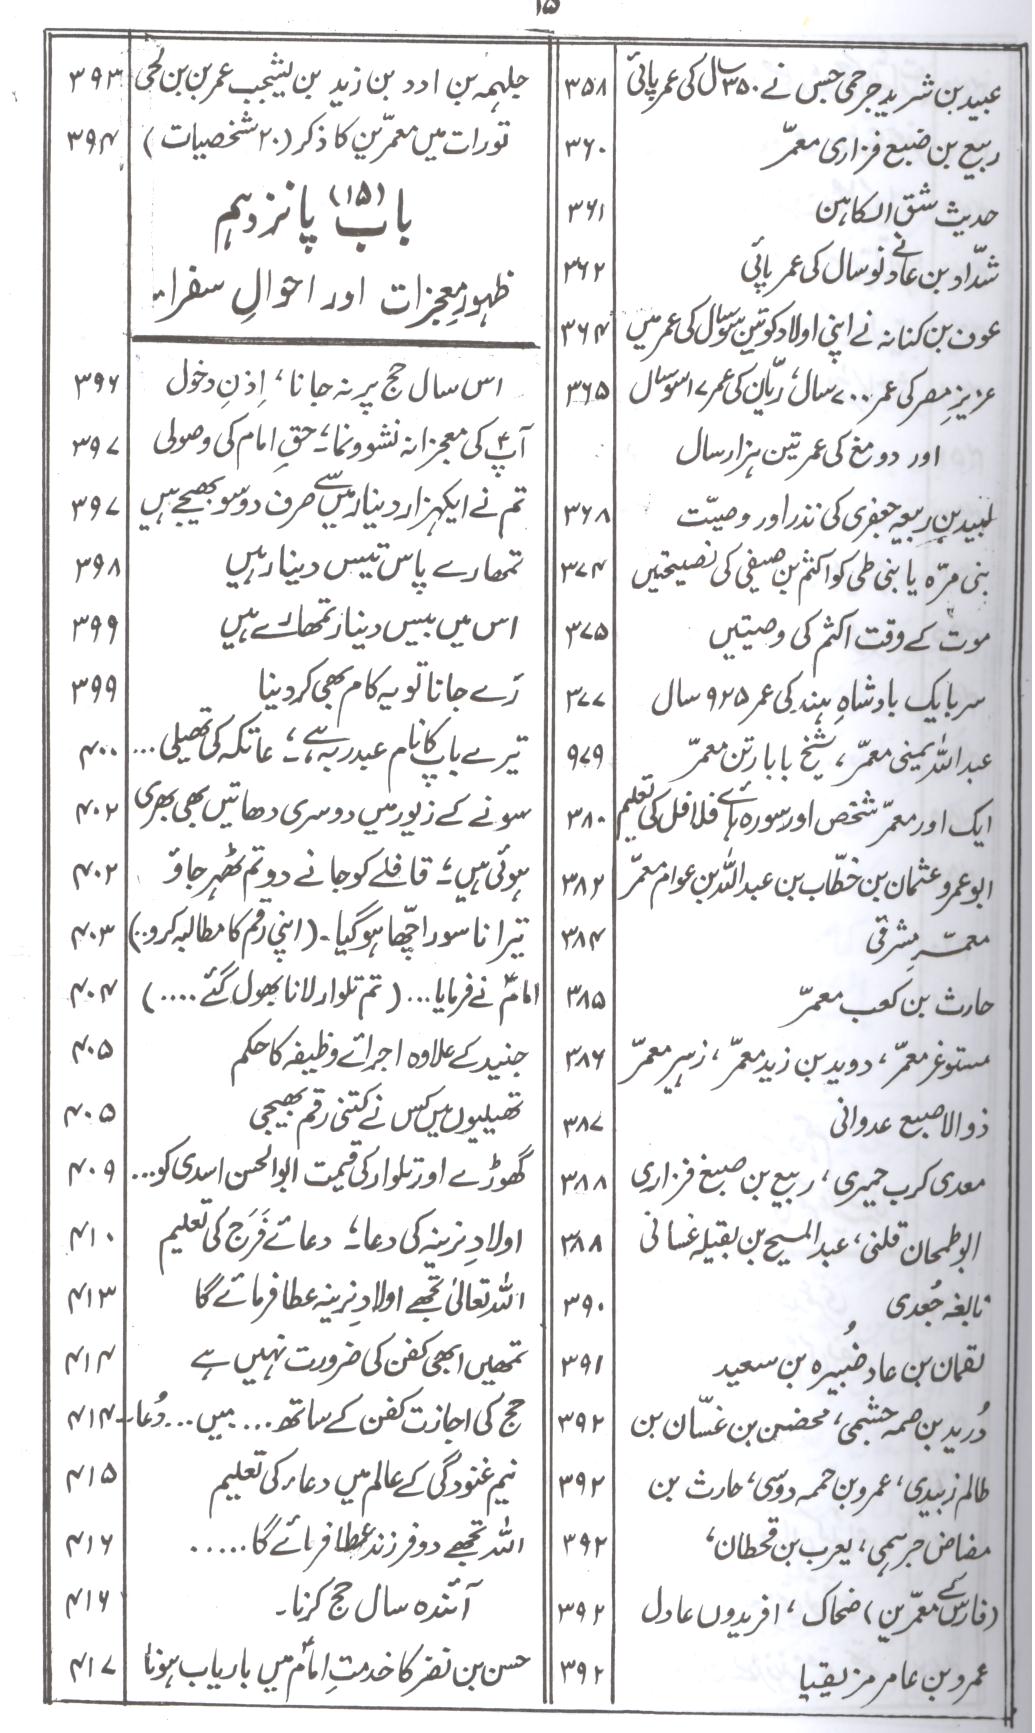 ۱۵
عبید بن شرید جرحمی جس نے ۳۵۰ سال کی عمر پائی ۳۵۸
ربیع بن ضبع فزاری معمّر ۳۶۰
حدیث شق الکاہن ۳۶۱
شدّاد بن عاد نے نو سال کی عمر پائی ۳۶۲
عوف بن کنانہ نے اپنی اولاد کو تین سو سال کی عمر میں ۳۶۴
عزیزِ مصر کی عمر ۷۰۰ سال، ریّان کی عمر ۱۷ سو سال ۳۶۵
اور دومغ کی عمر تین ہزار سال
لبید بن ربیعہ جعفری کی نذر اور وصیّت ۳۶۸
بنی مرّہ یا بنی طی کو اکثم بن صیفی کی نصیحتیں ۳۷۴
موت کے وقت اکثم کی وصیتیں ۳۷۵
سربایک بادشاہِ ہند کی عمر ۹۲۵ سال ۳۷۷
عبداللہ یمینی معمّر، شیخ بابا رتن معمّر ۹۷۹
ایک اور معمّر شخص اور سورہ ہائے قلاقل کی تعلیم ۳۸۰
ابو عمرو عثمان بن خطّاب بن عبداللہ بن عوام معمّر ۳۸۲
معمّر مشرقی ۳۸۴
حارث بن کعب معمّر ۳۸۵
مستوغر معمّر، دوید بن زید معمّر، زہیر معمّر ۳۸۶
ذوالاصبع عدوانی ۳۸۷
معدی کرب حمیری، ربیع بن ضبع فزاری ۳۸۸
ابوطمحان قلنی، عبدالمسیح بن بقیلہ غسانی ۳۸۸
نابغہ جُعدی ۳۹۰
لقمان بن عاد ضُبیرہ بن سعید ۳۹۱
دُرید بن صمہ حشمی، محضن بن غسّان بن ۳۹۲
ظالم زبیدی، عمرو بن حممہ دوسی، حارث بن ۳۹۲
مضاض جرہمی، یعرب بن قحطان، ۳۹۲
(فارس کے معمّرین) ضحاک، افریدوں عادل ۳۹۲
عمرو بن عامر مزیقیا ۳۹۲
جلہمہ بن ادد بن زید بن یشجب عمر بن بن لحی ۳۹۳
تورات میں معمّرین کا ذکر (۲۰ شخصیات) ۳۹۴
باب (۱۵) پانزدہم
ظہورِ معجزات اور احوالِ سفراء
اس سال حج پر نہ جانا، اِذنِ دخول ۳۹۶
آپؑ کی معجزانہ نشوونما۔؛ حقِ امام کی وصولی ۳۹۷
تم نے ایکہزار دینار میں سے صرف دوسو بھیجے ہیں ۳۹۷
تمھارے پاس تیس دینار ہیں ۳۹۸
اس میں بیس دینار تمھارے ہیں ۳۹۹
رَے جانا تو یہ کام بھی کر دینا ۳۹۹
تیرے باپ کا نام عبد ربہ ہے؛ عاتکہ کی تھیلی... ۴۰۰
سونے کے زیور میں دوسری دھاتیں بھی بھری ۴۰۲
ہوئی ہیں۔؛ قافلے کو جانے دو تم ٹھہر جاؤ ۴۰۲
تیرا ناسور اچّھا ہوگیا۔ (اپنی رقم کا مطالبہ کرو..) ۴۰۳
امامؑ نے فرمایا... (تم تلوار لانا بھول گئے ....) ۴۰۴
جنید کے علاوہ اجرائے وظیفہ کا حکم ۴۰۵
تھیلیوں میں کس نے کتنی رقم بھیجی ۴۰۵
گھوڑے اور تلوار کی قیمت ابوالحسن اسدی کو... ۴۰۹
اولادِ نرینہ کی دعا؛ دعائے فَرَج کی تعلیم ۴۱۰
اللہ تعالیٰ تجھے اولادِ نرینہ عطا فرمائے گا ۴۱۳
تمھیں ابھی کفن کی ضرورت نہیں ہے ۴۱۴
حج کی اجازت کفن کے ساتھ... میں... دُعا۔ ۴۱۴
نیم غنودگی کے عالم میں دعاء کی تعلیم ۴۱۵
اللہ تجھے دو فرزند عطا فرمائے گا..... ۴۱۶
آئندہ سال حج کرنا۔ ۴۱۶
حسن بن نضر کا خدمتِ امامؑ میں باریاب ہونا ۴۱۷